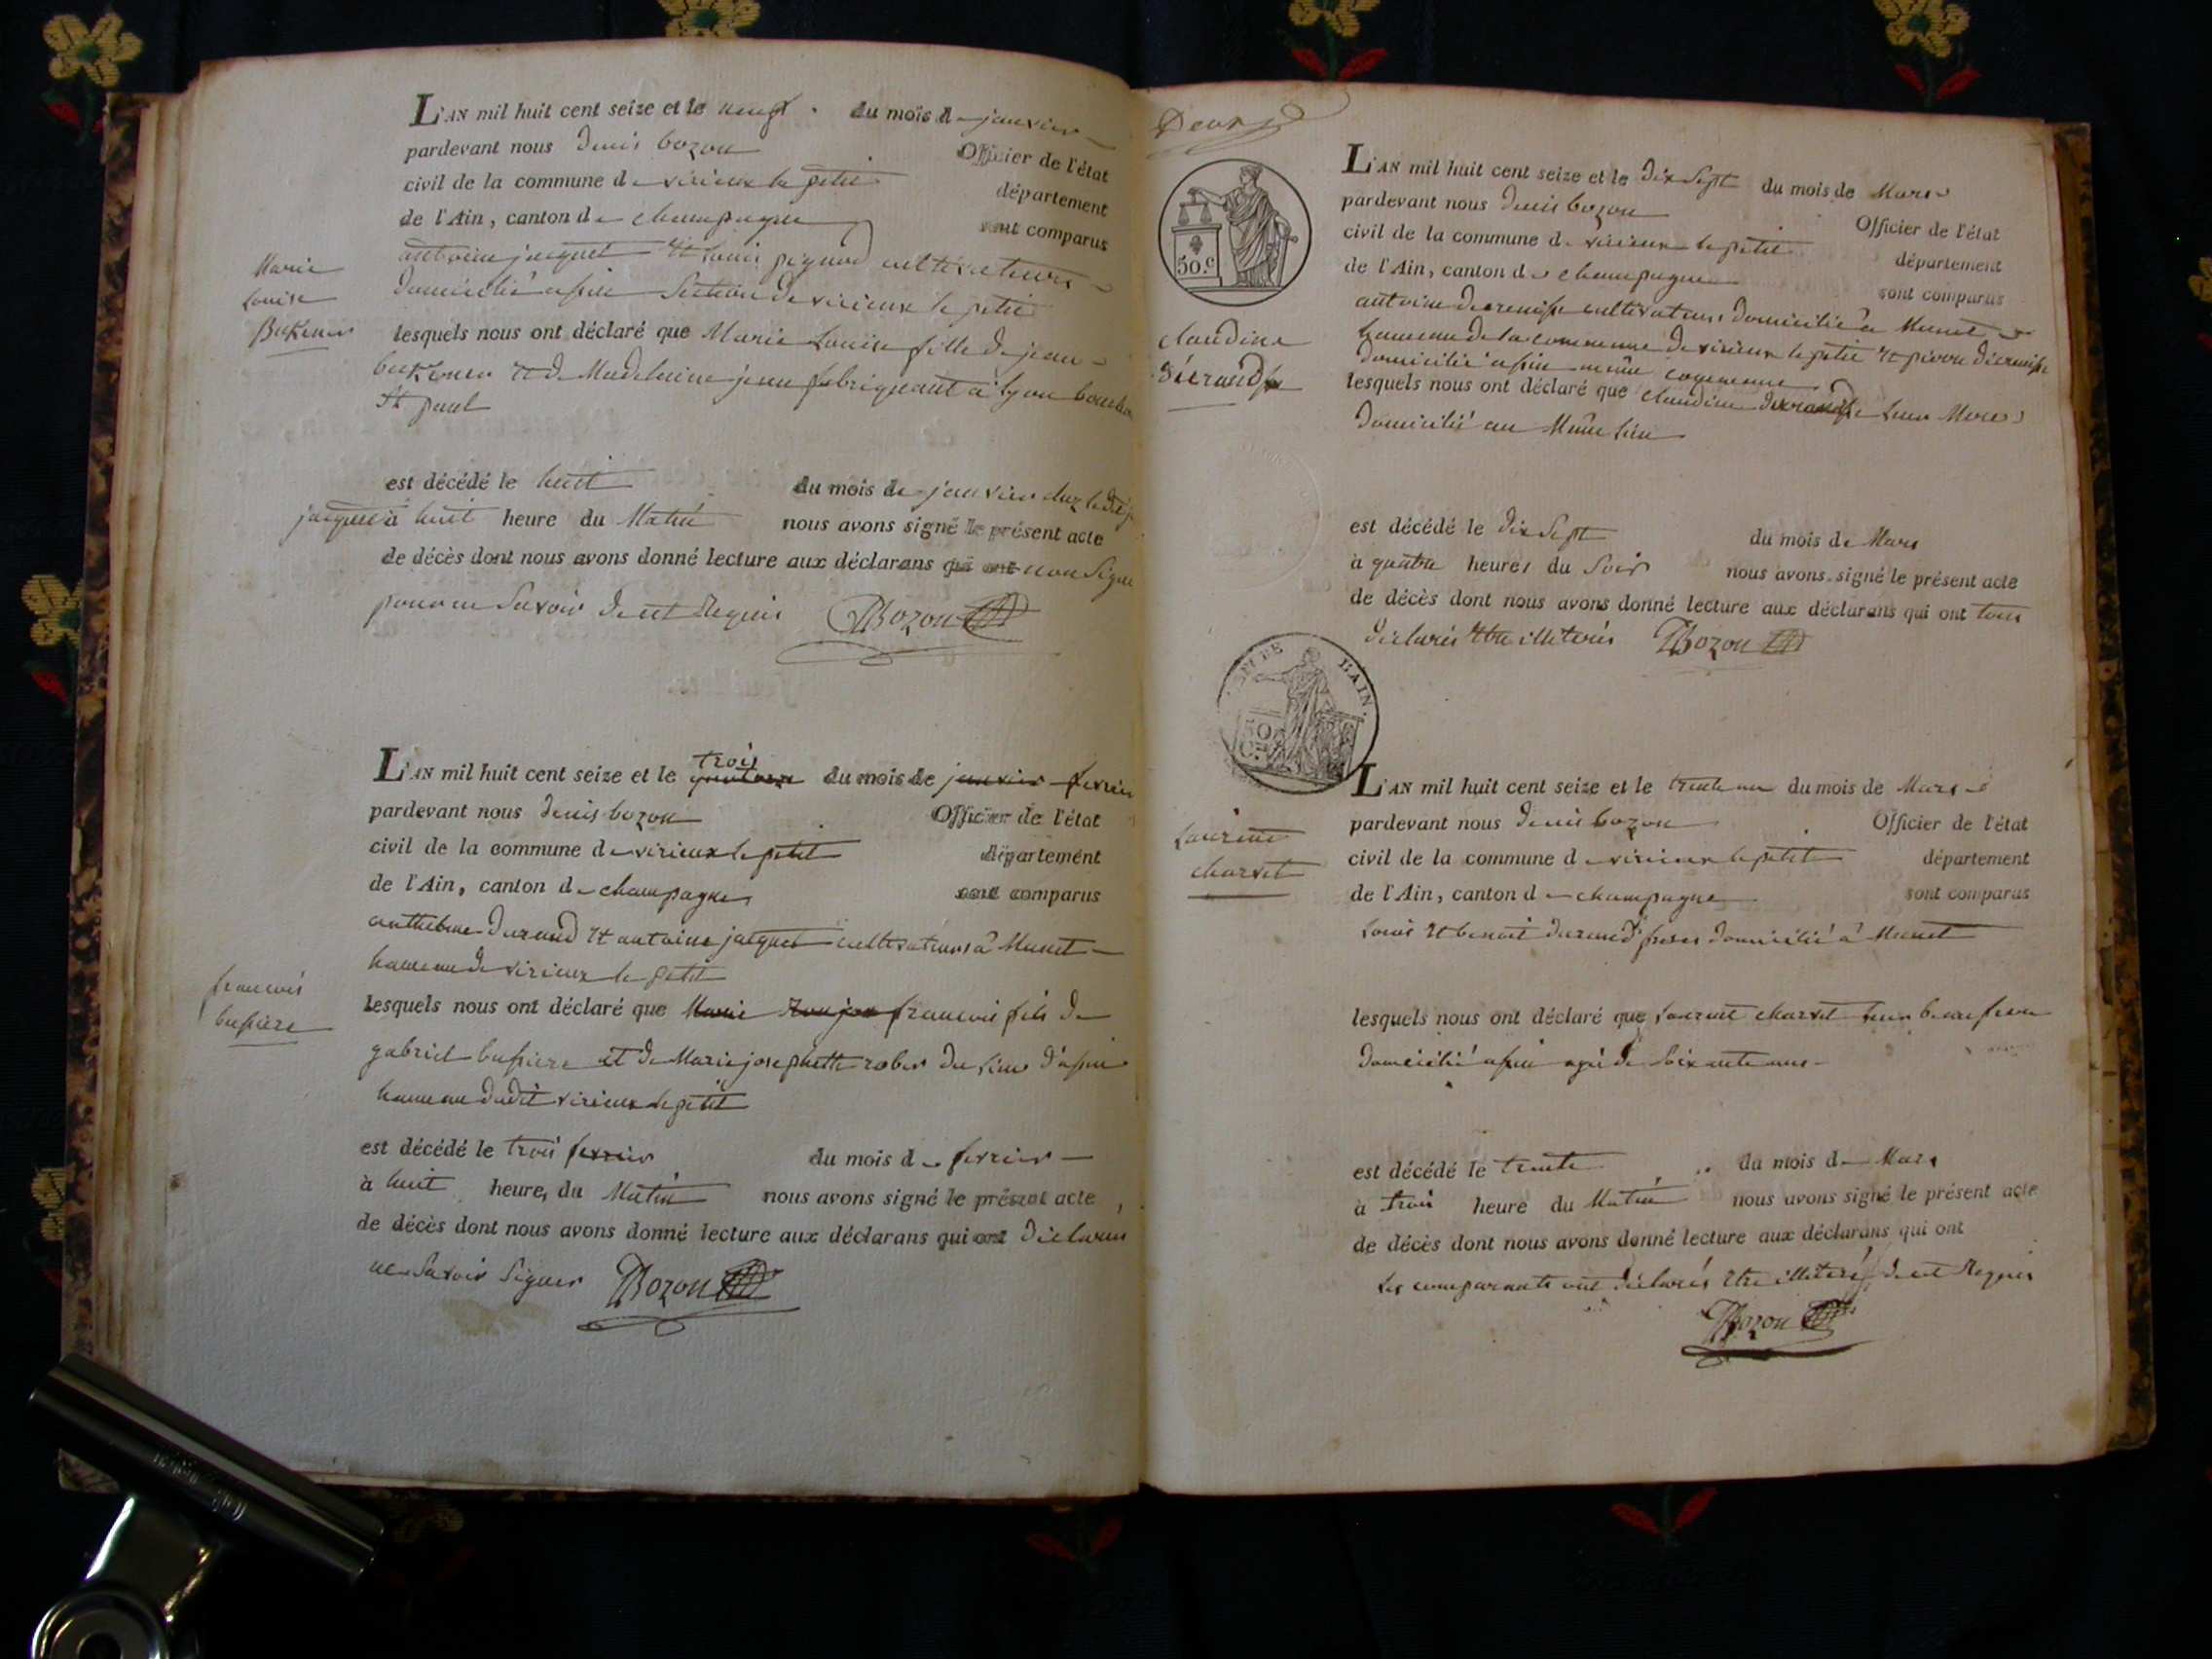 L'AN mil huit cent seize et le neuf du mois de janvier
pardevant nous denis bozon Officier de l'état
civil de la commune de virieux le petit département
de l'Ain, canton de champagne sont comparus
antoine jacquet et louis pignod cultivateurs
domicilié a assin Section de virieux le petit
Marie
Louise
lesquels nous ont déclaré que Marie Louise fille de jean
et de Madelaine fabriquant a lyon
St paul
est décédé le huit du mois de janvier chez ledit
jacquet à huit heure du Matin nous avons signé le présent acte
de décès dont nous avons donné lecture aux déclarans qui ont non Signé
pour ne Savoir de cet Requis DBozon
L'AN mil huit cent seize et le trois du mois de janvier fevrier
pardevant nous denis bozon Officier de l'état
civil de la commune de virieux le petit département
de l'Ain, canton de champagne sont comparus
anthelme durand et antoine jacquet cultivateurs a Munet
hameau de virieux le petit
francois
bussiere
lesquels nous ont déclaré que Marie francois fils de
gabriel bussiere et de Marie josephette rober du lieu d'assin
hameau dudit virieux le petit
est décédé le trois fevrier du mois de fevrier
à huit heures du Matin nous avons signé le présent acte
de décès dont nous avons donné lecture aux déclarans qui ont déclarés
ne Savoir Signer DBozon
Deux
50.c
L'AN mil huit cent seize et le dix Sept du mois de Mars
pardevant nous denis bozon Officier de l'état
civil de la commune de virieux le petit département
de l'Ain, canton de champagne sont comparus
antoine cultivateurs domicilié a Munet
hameau de la commune de virieux le petit et
domicilié a assin même commune
claudine
lesquels nous ont déclaré que claudine leur Mere
domicilié au Même lieu
est décédé le dix Sept du mois de Mars
à quatre heures du Soir nous avons signé le présent acte
de décès dont nous avons donné lecture aux déclarans qui ont tous
déclarés être illiterés DBozon
DE L'AIN.
50
C.
L'AN mil huit cent seize et le trente un du mois de Mars
pardevant nous denis bozon Officier de l'état
civil de la commune de virieux le petit département
de l'Ain, canton de champagne sont comparus
Louis et benoit durand freres domicilié a Munet
Laurent
charvet
lesquels nous ont déclaré que Laurent charvet leur beau frere
domicilié a assin agé de Soixante ans
est décédé le trente du mois de Mars
à trois heure du Matin nous avons signé le présent acte
de décès dont nous avons donné lecture aux déclarans qui ont
Les comparants ont déclarés être illiterés de cet Requis
DBozon